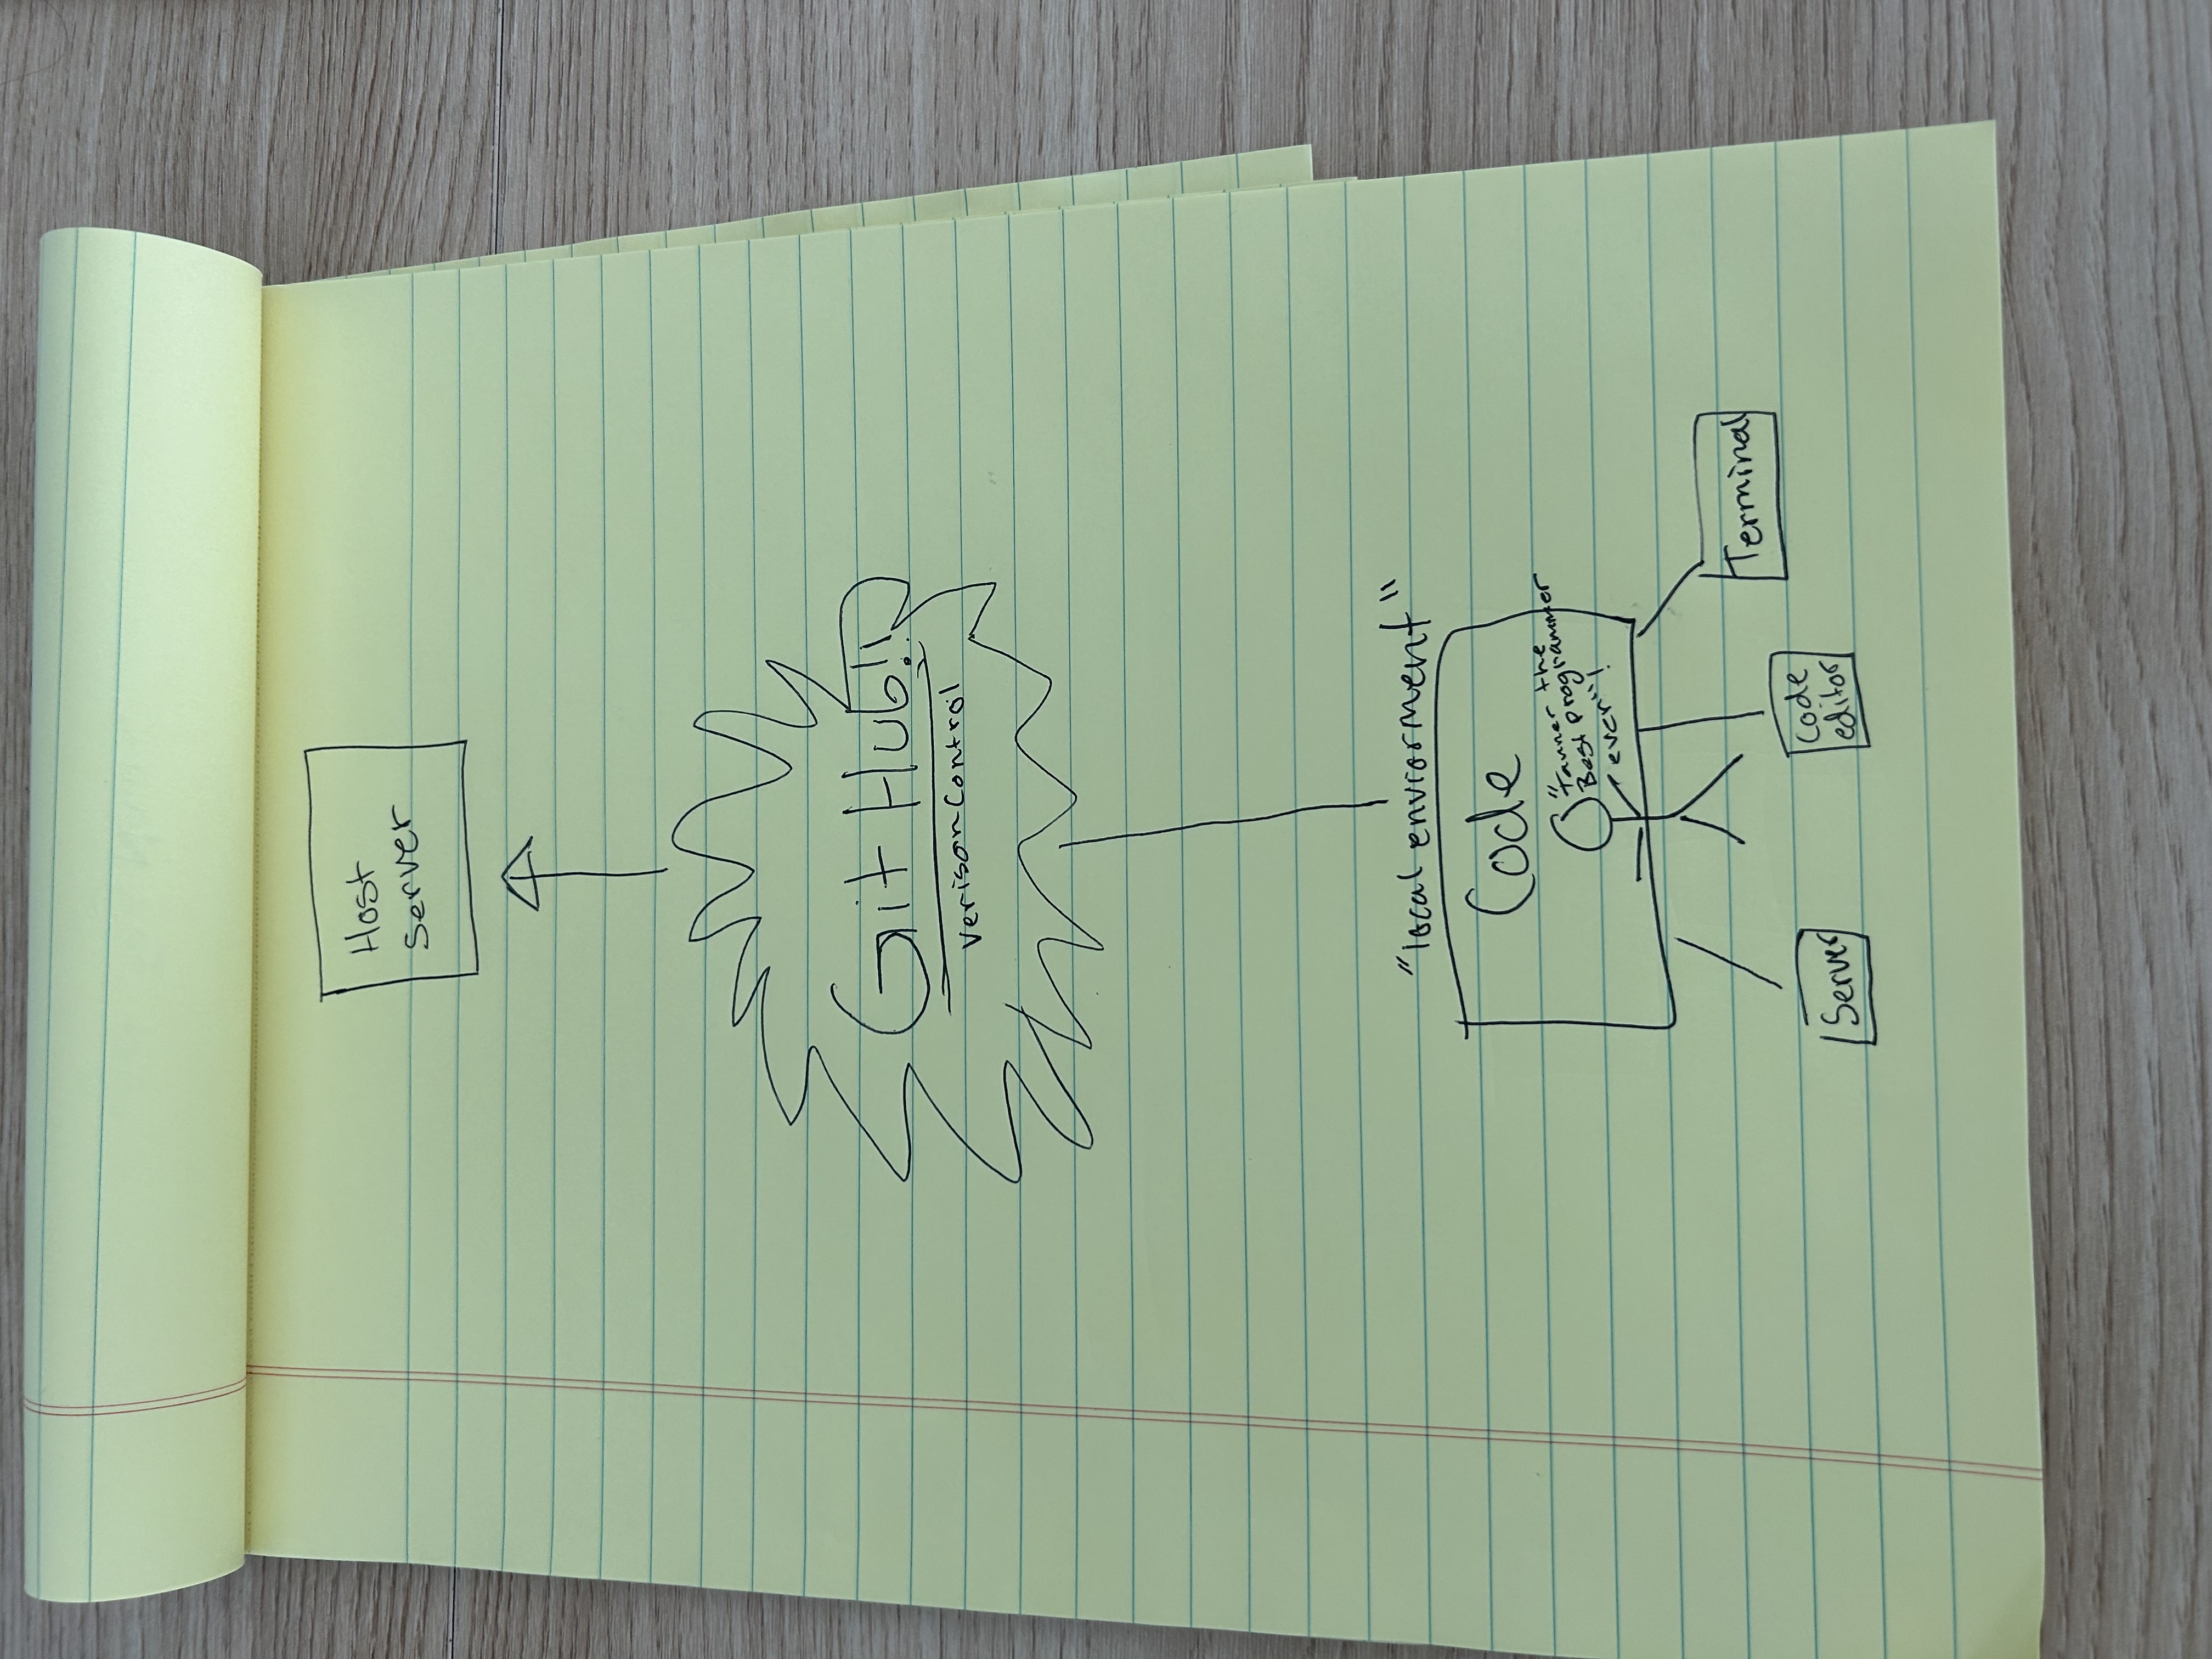 Host
Server
Git Hub!!
Verison Control
"local enviorment"
Code
"Tanner the
Best programmer
ever"!
Terminal
Code
editor
Server